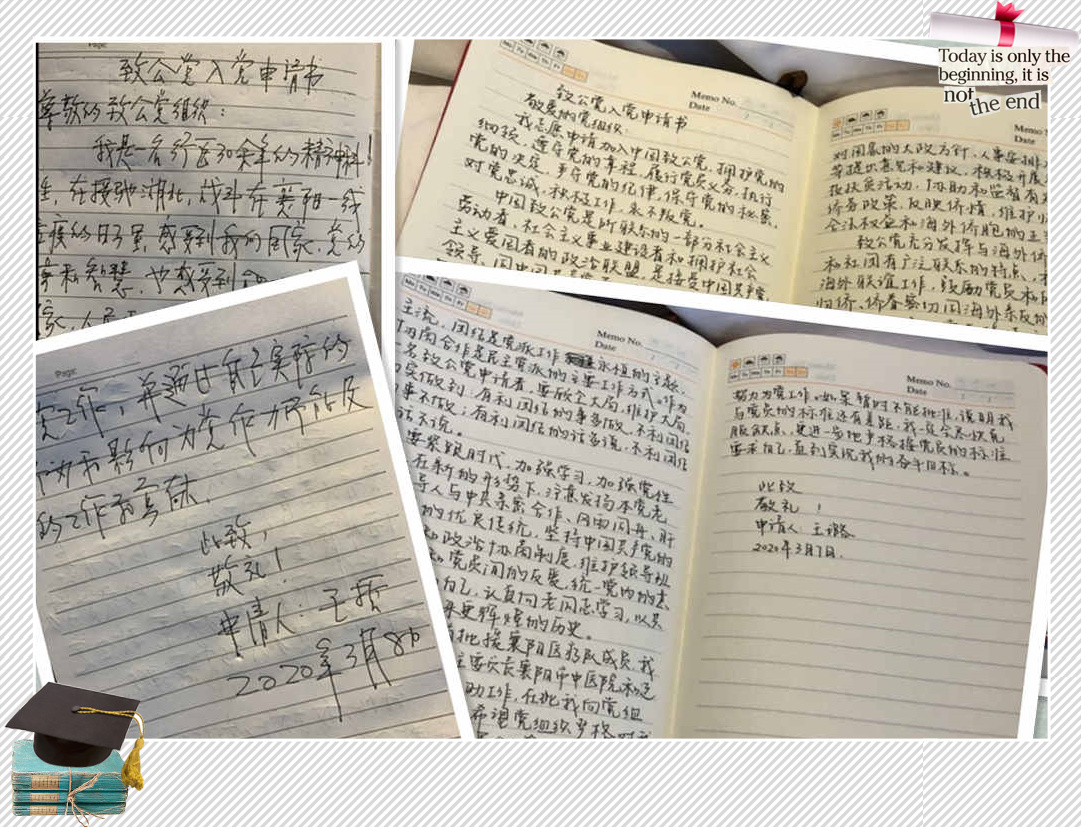 Today is only the
beginning, it is
not
the end
Page
致公党入党申请书
尊敬的致公党组织：
我是一名行医30余年的精神科
生，在援驰湖北，战斗在襄阳一线
疫的日子里，感受到我们国家、党的
和智慧，也感受到
Memo No.
Date
Mo Tu We Th Fr Sa Su
致公党入党申请书
敬爱的党组织：
我志愿申请加入中国致公党，拥护党的
纲领，遵守党的章程，履行党员义务，执行
党的决定，严守党的纪律，保守党的秘密，
对党忠诚，积极工作，永不叛党。
中国致公党是所联系的一部分社会主义
劳动者，社会主义事业建设者和拥护社会
主义爱国者的政治联盟，是接受中国共产党
领导，同中国共产党
Memo
Date
对国家的大政方针，人事安排
等提出意见和建议，积极开展
侨务政策，反映侨情，维护归
合法权益和海外侨胞的正
致公党充分发挥与海外侨
和社团有广泛联系的特点，
海外联谊工作，鼓励党员和
归侨、侨眷密切同海外亲友的
Page
工作，并通过自己实际的
和影响为党作力所能及
的工作和贡献。
此致，
敬礼！
申请人：王
2020年3月8日
Memo No.
Date
主流，团结是党派工作永恒的主题，
协商合作是民主党派的主要工作方式。作为
一名致公党申请者，要顾全大局，维护大局，
做到：有利团结的事多做，不利团结
事不做；有利团结的话多说，不利团结
话不说。
要紧跟时代，加强学习，加强党性
在新的形势下，注意发扬本党老
导人与中共亲密合作、风雨同舟、肝
的优良传统，坚持中国共产党的
和政治协商制度，维护领导班
和党员间的友爱，统一党内的意
自己，认真向老同志学习，以共
来更辉煌的历史。
批援襄阳医疗队成员，我
主要负责襄阳市中医院和定
助工作，在此我向党组
希望党组织严格
Memo No.
Date
Mo Tu We Th Fr Sa Su
努力为党工作。如果暂时不能批准，说明我
与党员的标准还有差距，我一定会尽快克
服缺点，更进一步地严格按党员的标准
要求自己，直到实现我的奋斗目标。
此致
敬礼！
申请人：王
2020年3月7日.